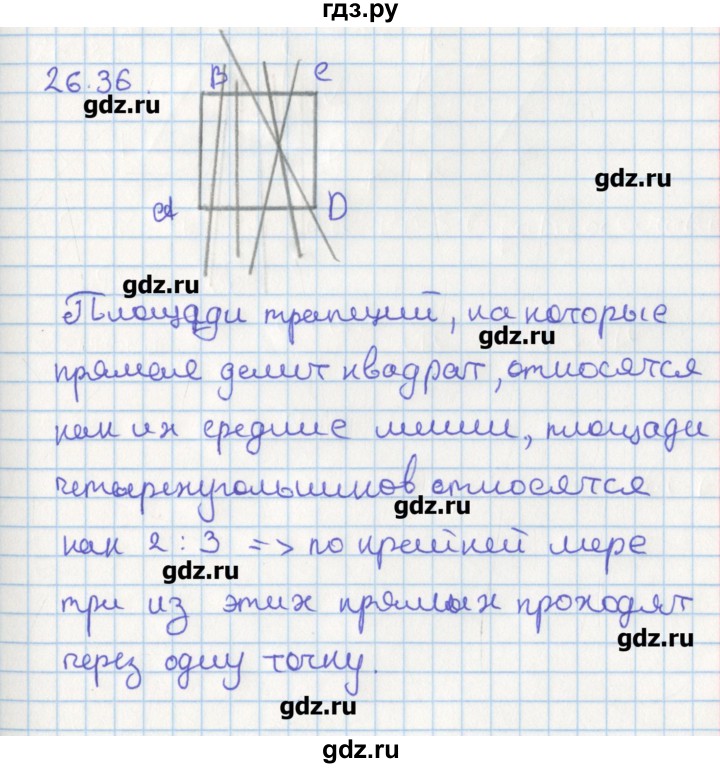 гдз.ру
26.36.
B C
gdz.ru
gdz.ru
A D
gdz.ru
Площади трапеций, на которые
gdz.ru
прямые делит квадрат, относятся
как их средние линии, площади
четырехугольников относятся
gdz.ru
как 2 : 3 => по крайней мере
gdz.ru
три из этих прямых проходят
gdz.ru
через одну точку.
gdz.ru
gdz.ru